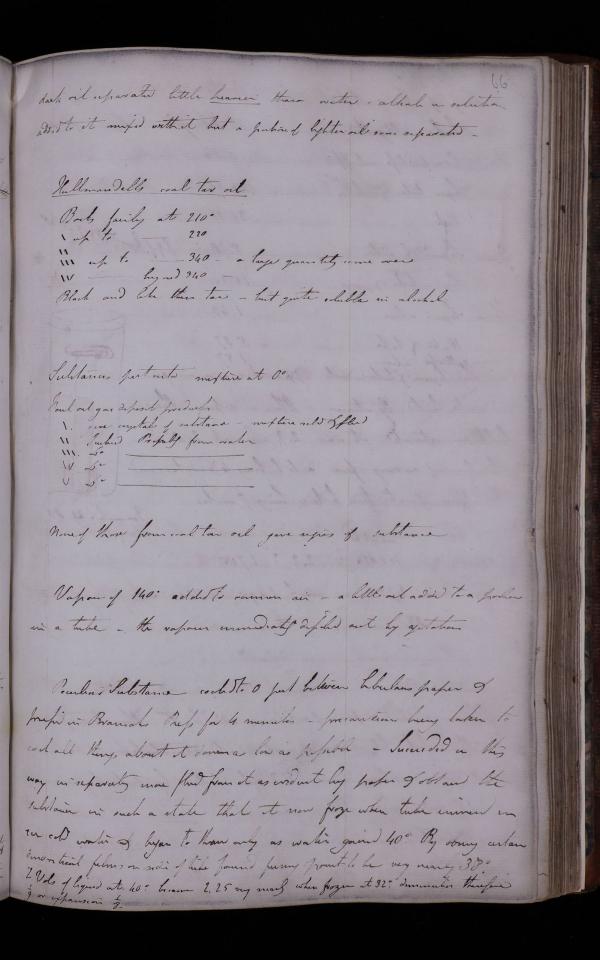 66
dark oil separated little heavier than water - alkali in solution
added to it mixed with it but a portion of lighter oil soon separated -
Hullmandells coal tar oil
Boils fairly at 210°
\ up to 220
\\\ up to 340 - a large quantity came over
\V beyond 340
Black and like thin tar - but quite soluble in alcohol
Substances put into mixture at 0°
Foul oil gas deposit products
\. gave crystals of substance - mixture
\\ Portable from water
\\\. do
\V do
V do
None of those from coal tar oil gave signs of substance
Vapour of 140° added to common air - a little oil added to a portion
in a tube - the vapour immediately dissolved out by agitation
Peculiar Substance cooled to 0 put between bibulous paper &
pressed in Bramahs Press for 4 minutes - precaution being taken to
cool all things about it down as low as possible - Succeeded in this
way in separating more fluid from it as evident by paper & obtained the
substance in such a state that it now froze when tube immersed in
ice cold water & began to thaw only as water gained 40° By observing certain
films on side of tube found freezing point to be very nearly 38°
2 Vols of liquid at 40° became 2.25 very nearly when frozen at 32° diminution therefore
or expansion 1/9